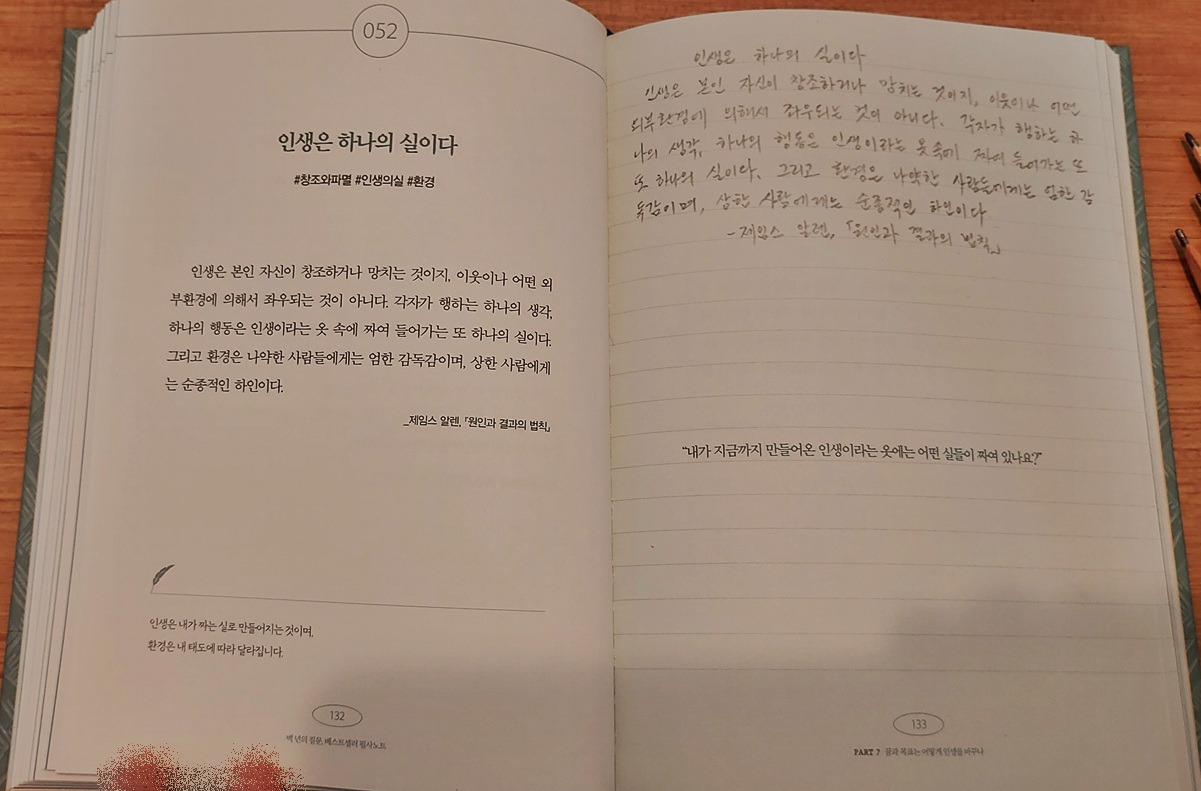 052
인생은 하나의 실이다
#창조와파멸 #인생의실 #환경
인생은 본인 자신이 창조하거나 망치는 것이지, 이웃이나 어떤 외
부환경에 의해서 좌우되는 것이 아니다. 각자가 행하는 하나의 생각,
하나의 행동은 인생이라는 옷 속에 짜여 들어가는 또 하나의 실이다.
그리고 환경은 나약한 사람들에게는 엄한 감독감이며, 상한 사람에게
는 순종적인 하인이다.
_제임스 알렌, 『원인과 결과의 법칙』
인생은 내가 짜는 실로 만들어지는 것이며,
환경은 내 태도에 따라 달라집니다.
132
백 년의 질문, 베스트셀러 필사노트
인생은 하나의 실이다
인생은 본인 자신이 창조하거나 망치는 것이지, 이웃이나 어떤
외부환경에 의해서 좌우되는 것이 아니다. 각자가 행하는 하
나의 생각, 하나의 행동은 인생이라는 옷 속에 짜여 들어가는 또
또 하나의 실이다. 그리고 환경은 나약한 사람들에게는 엄한 감
독감이며, 상한 사람에게는 순종적인 하인이다
-제임스 알렌, 「원인과 결과의 법칙」
“내가 지금까지 만들어온 인생이라는 옷에는 어떤 실들이 짜여 있나요?”
133
PART 7 꿈과 목표는 어떻게 인생을 바꾸나